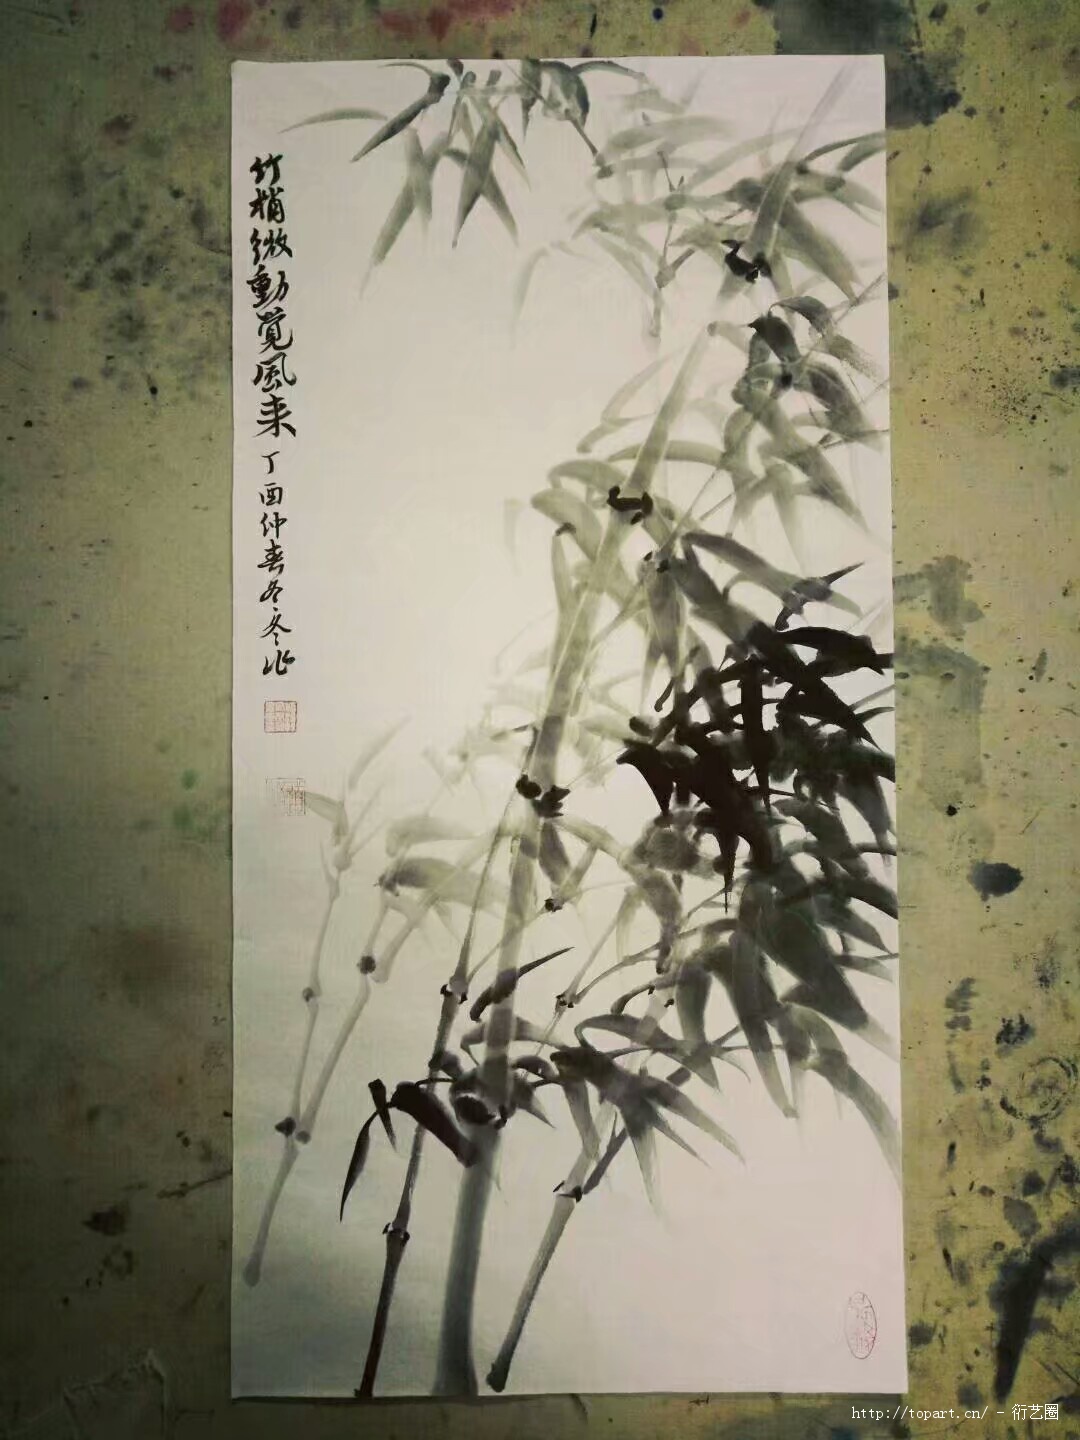 竹梢微動覺風来
丁酉仲春冬冬作
http://topart.cn/ - 衍艺圈